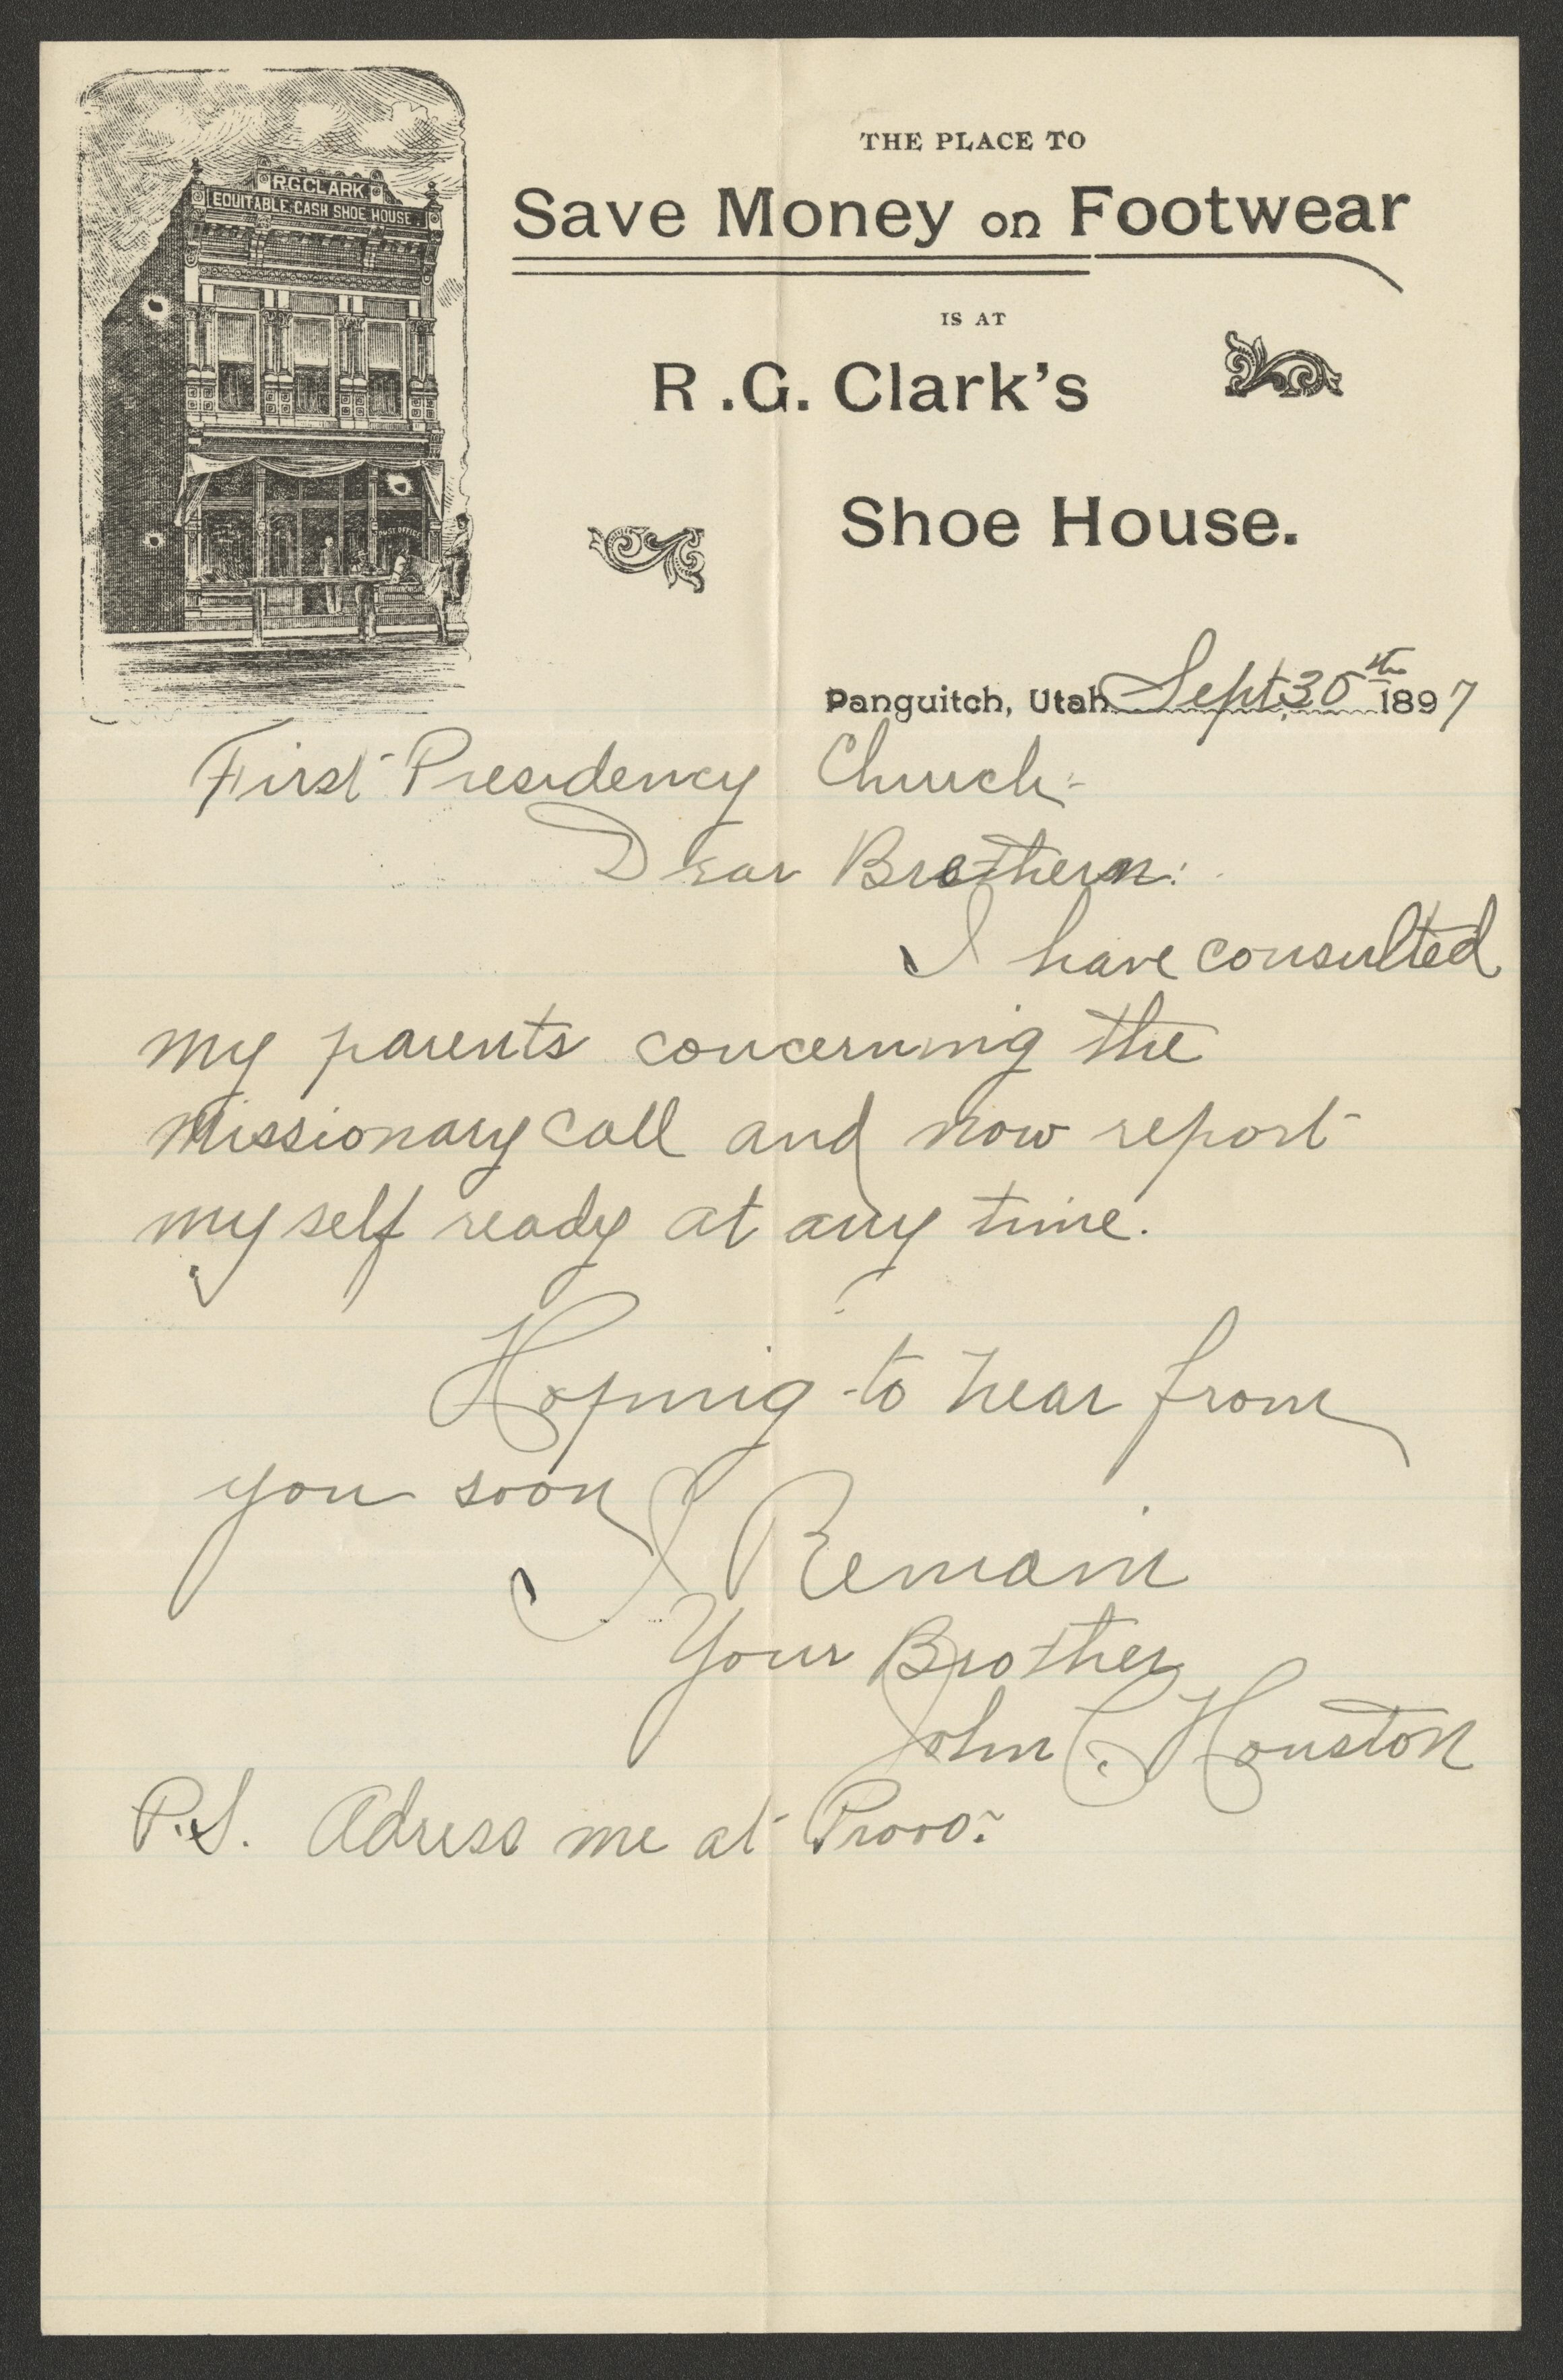 R.G.CLARK
EQUITABLE CASH SHOE HOUSE.
POST OFFICE
THE PLACE TO
Save Money on Footwear
IS AT
R.G. Clark's
Shoe House.
Panguitch, Utah Sept, 30th 1897
First Presidency Church:
Dear Brethern:
I have consulted
my parents concerning the
Missionary call and now report
my self ready at any time.
Hoping to hear from
you soon
I Remain
Your Brother
John C. Houston
P.S. Adress me at Provo.